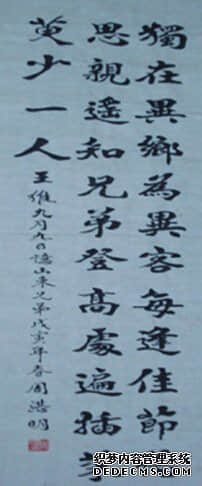 獨在異鄉為異客每逢佳節
思親遙知兄弟登高處遍插茱
萸少一人
王維九月九日憶山東兄弟戊寅年春周浩明
织梦内容管理系统
DEDECMS.COM